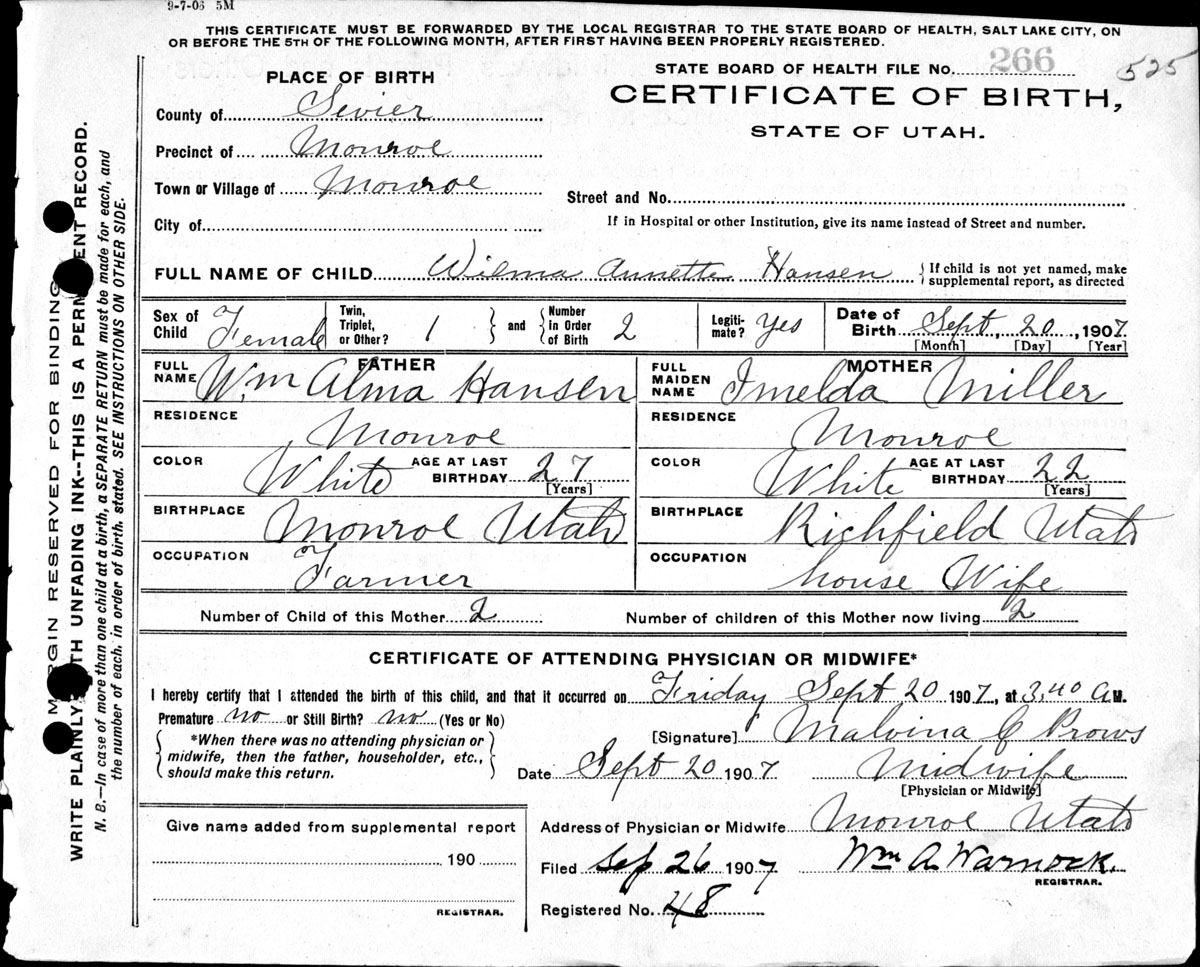 9-7-06 5M
THIS CERTIFICATE MUST BE FORWARDED BY THE LOCAL REGISTRAR TO THE STATE BOARD OF HEALTH, SALT LAKE CITY, ON
OR BEFORE THE 5TH OF THE FOLLOWING MONTH, AFTER FIRST HAVING BEEN PROPERLY REGISTERED.
PLACE OF BIRTH
STATE BOARD OF HEALTH FILE No. 266
525
CERTIFICATE OF BIRTH,
STATE OF UTAH.
County of Sevier
Precinct of Monroe
Town or Village of Monroe
Street and No.
City of
If in Hospital or other Institution, give its name instead of Street and number.
FULL NAME OF CHILD Wilma Annette Hansen { If child is not yet named, make
supplemental report, as directed
Sex of Child Female
Twin, Triplet, or Other? 1 } and { Number In Order of Birth 2
Legiti-mate? Yes
Date of Birth Sept, 20, 1907
[Month] [Day] [Year]
FATHER
FULL NAME Wm Alma Hansen
MOTHER
FULL MAIDEN NAME Imelda Miller
RESIDENCE Monroe
RESIDENCE Monroe
COLOR White AGE AT LAST BIRTHDAY 27 [Years]
COLOR White AGE AT LAST BIRTHDAY 22 [Years]
BIRTHPLACE Monroe Utah
BIRTHPLACE Richfield Utah
OCCUPATION Farmer
OCCUPATION house Wife
Number of Child of this Mother 2
Number of children of this Mother now living 2
CERTIFICATE OF ATTENDING PHYSICIAN OR MIDWIFE*
I hereby certify that I attended the birth of this child, and that it occurred on Friday Sept 20 1907, at 3,40 A M.
Premature no or Still Birth? no (Yes or No)
*When there was no attending physician or
midwife, then the father, householder, etc.,
should make this return.
[Signature] Malvina C Prows
Date Sept 20 1907 Midwife
[Physician or Midwife]
Give name added from supplemental report
190
REGISTRAR.
Address of Physician or Midwife Monroe Utah
Filed Sep 26 1907 Wm A. Warnock.
REGISTRAR.
Registered No. 48
MARGIN RESERVED FOR BINDING
WRITE PLAINLY WITH UNFADING INK--THIS IS A PERMANENT RECORD.
N. B.—In case of more than one child at a birth, a SEPARATE RETURN must be made for each, and
the number of each, in order of birth, stated. SEE INSTRUCTIONS ON OTHER SIDE.